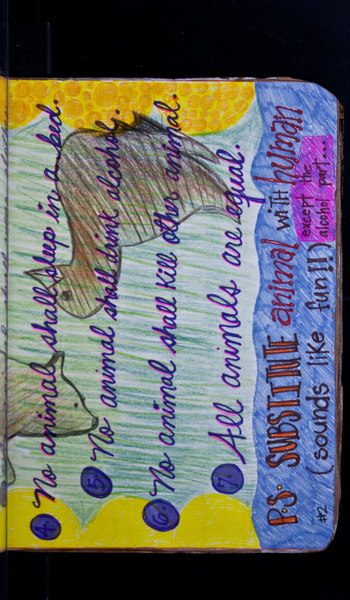 4. No animal shall sleep in a bed.
5. No animal shall drink alcohol.
6. No animal shall kill other animal.
7. All animals are equal.
P.S. SUBSTITUTE animal WITH human
(sounds like fun!!) except the
alcohol part...
#2